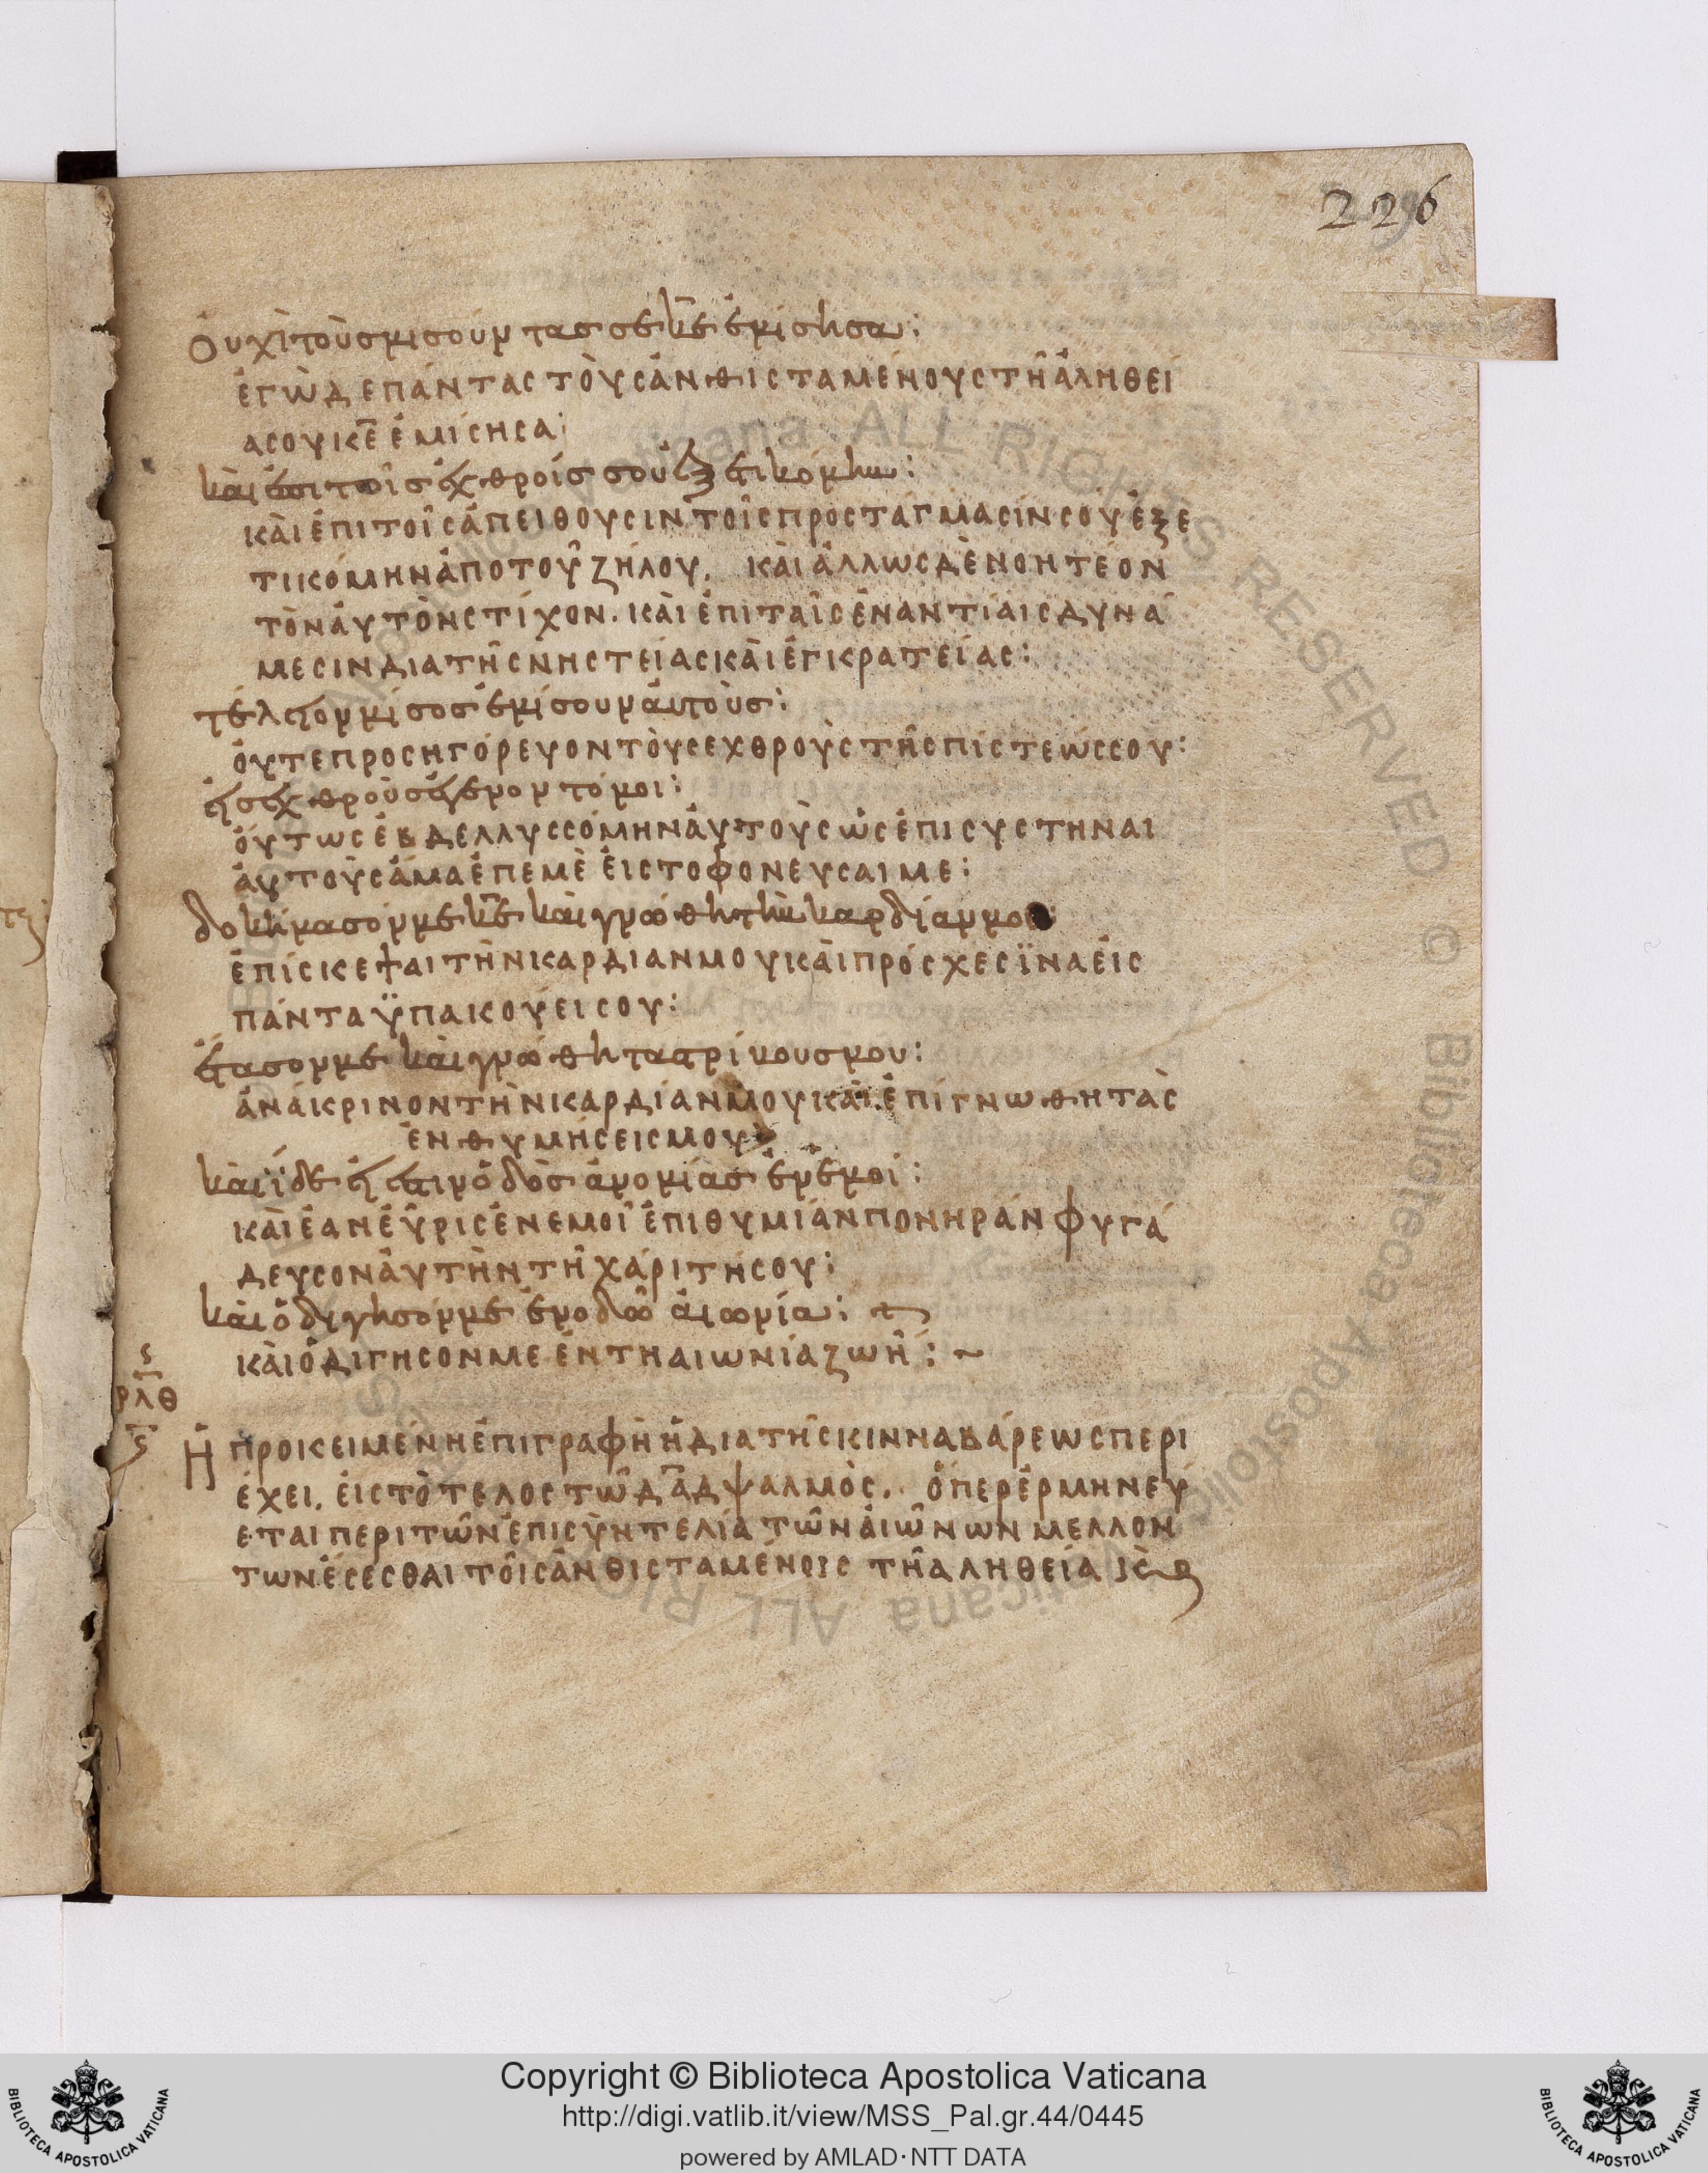 226
Ὀυχὶ τοὺς μισοῦντας σὲ κ̅ε̅ ἐμίσησα:
ἐγὼ δε πάντας τοὺς ἀνθισταμένους τῆ ἀληθεί
ας ου κ̅ε̅ ἐμίσησα:
κὰι ἐπι τοῖς ἐχθροῖς σου ἐξετικόμην:
κὰι ἐπι τοῖς ἀπειθουσιν τοῖς προσταγμασίν σου ἐξε
τικόμην ἀπο τοῦ ζήλου. κὰι ἄλλως δὲ νοητέον
τὸν ἀυτὸν στίχον. κὰι ἐπι ταῖς ἐναντίαις δυνά
μεσιν δια τῆς νηστείας κὰι ἐγκρατείας:
τέλειον μίσος ἐμίσουν ἀυτοὺς:
ὁυτε προσηγόρευον τὸυς εχθροὺς τῆς πίστεώς σου:
ἐις ἐχθροὺς ἐγενοντό μοι:
ὁυτως ἐβδελλυσσόμην ἀυτοὺς ὡς ἐπισυστηναι
ἀυτοὺς ἅμα ἐπ εμὲ ἐις το φονευσαι με:
δοκίμασον με κ̅ε̅ κὰι γνῶθι τὴν καρδίαν μου:
ἐπίσκεψαι τὴν καρδιαν μου κὰι πρόσχες ϊνα ἐις
πάντα ϋπακούει σου:
ἔτασον με κὰι γνῶθη τας τρίβους μου:
ἀνάκρινον τὴν καρδίαν μου κὰι ἐπίγνωθη τὰς
ἐνθυμήσεις μου
κὰι ἴδε ἐι ἔστιν ὁδὸς ἀνομίας ἐν ἐμοι:
κὰι ἐαν ἐύρις ἐν εμοῖ ἐπιθυμίαν πονηράν φυγά
δευσον ἀυτὴν τῆ χάριτή σου:
κὰι ὁδήγησόν με ἐν οδῶ ἀιωνία:
κὰι ὁδιγησον με ἐν τη αιωνία ζωῆ: ~
ρλθ
Ἡ προικειμένη ἐπιγραφὴ ἡ δια τῆς κινναβάρεως περι
έχει. ἐις τὸ τελος τῶ δ̅α̅δ̅ ψαλμὸς. ὅπερ ἑρμηνεύ
εται περι τῶν ἐπι σὺντελία τῶν ἀιῶνων μελλον
των ἔσεσθαι τοῖς ἀνθισταμένοις τῆ αληθεία
Copyright © Biblioteca Apostolica Vaticana
http://digi.vatlib.it/view/MSS_Pal.gr.44/0445
powered by AMLAD·NTT DATA